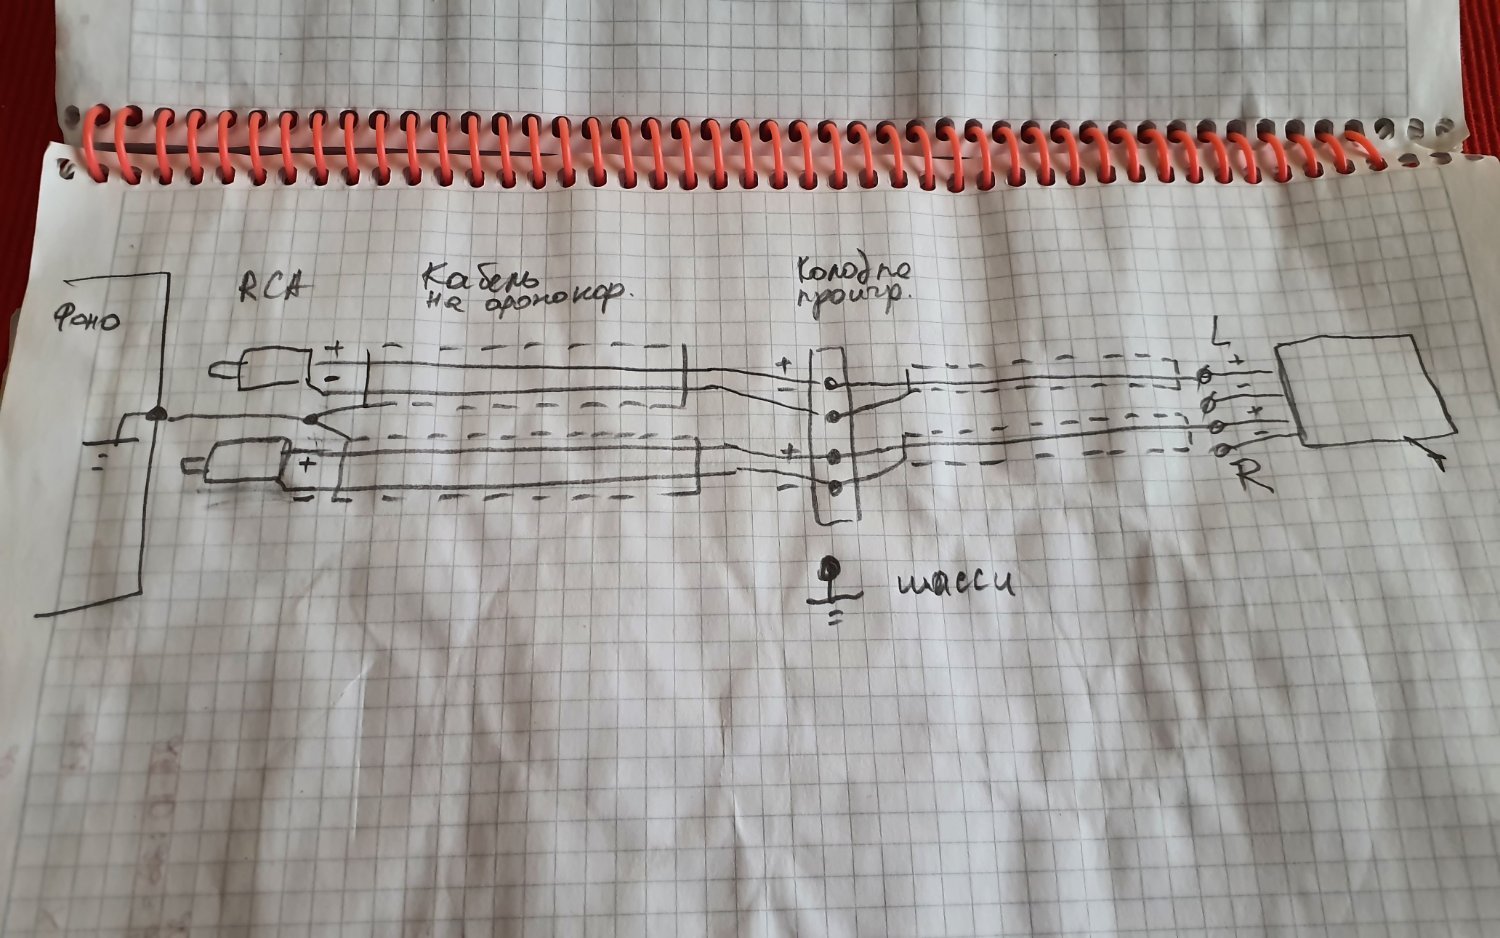 RCA
Кабель
на фонокор.
Колодка
проигр.
Фоно
L
+
+
-
+
-
-
+
+
+
-
-
R
шасси